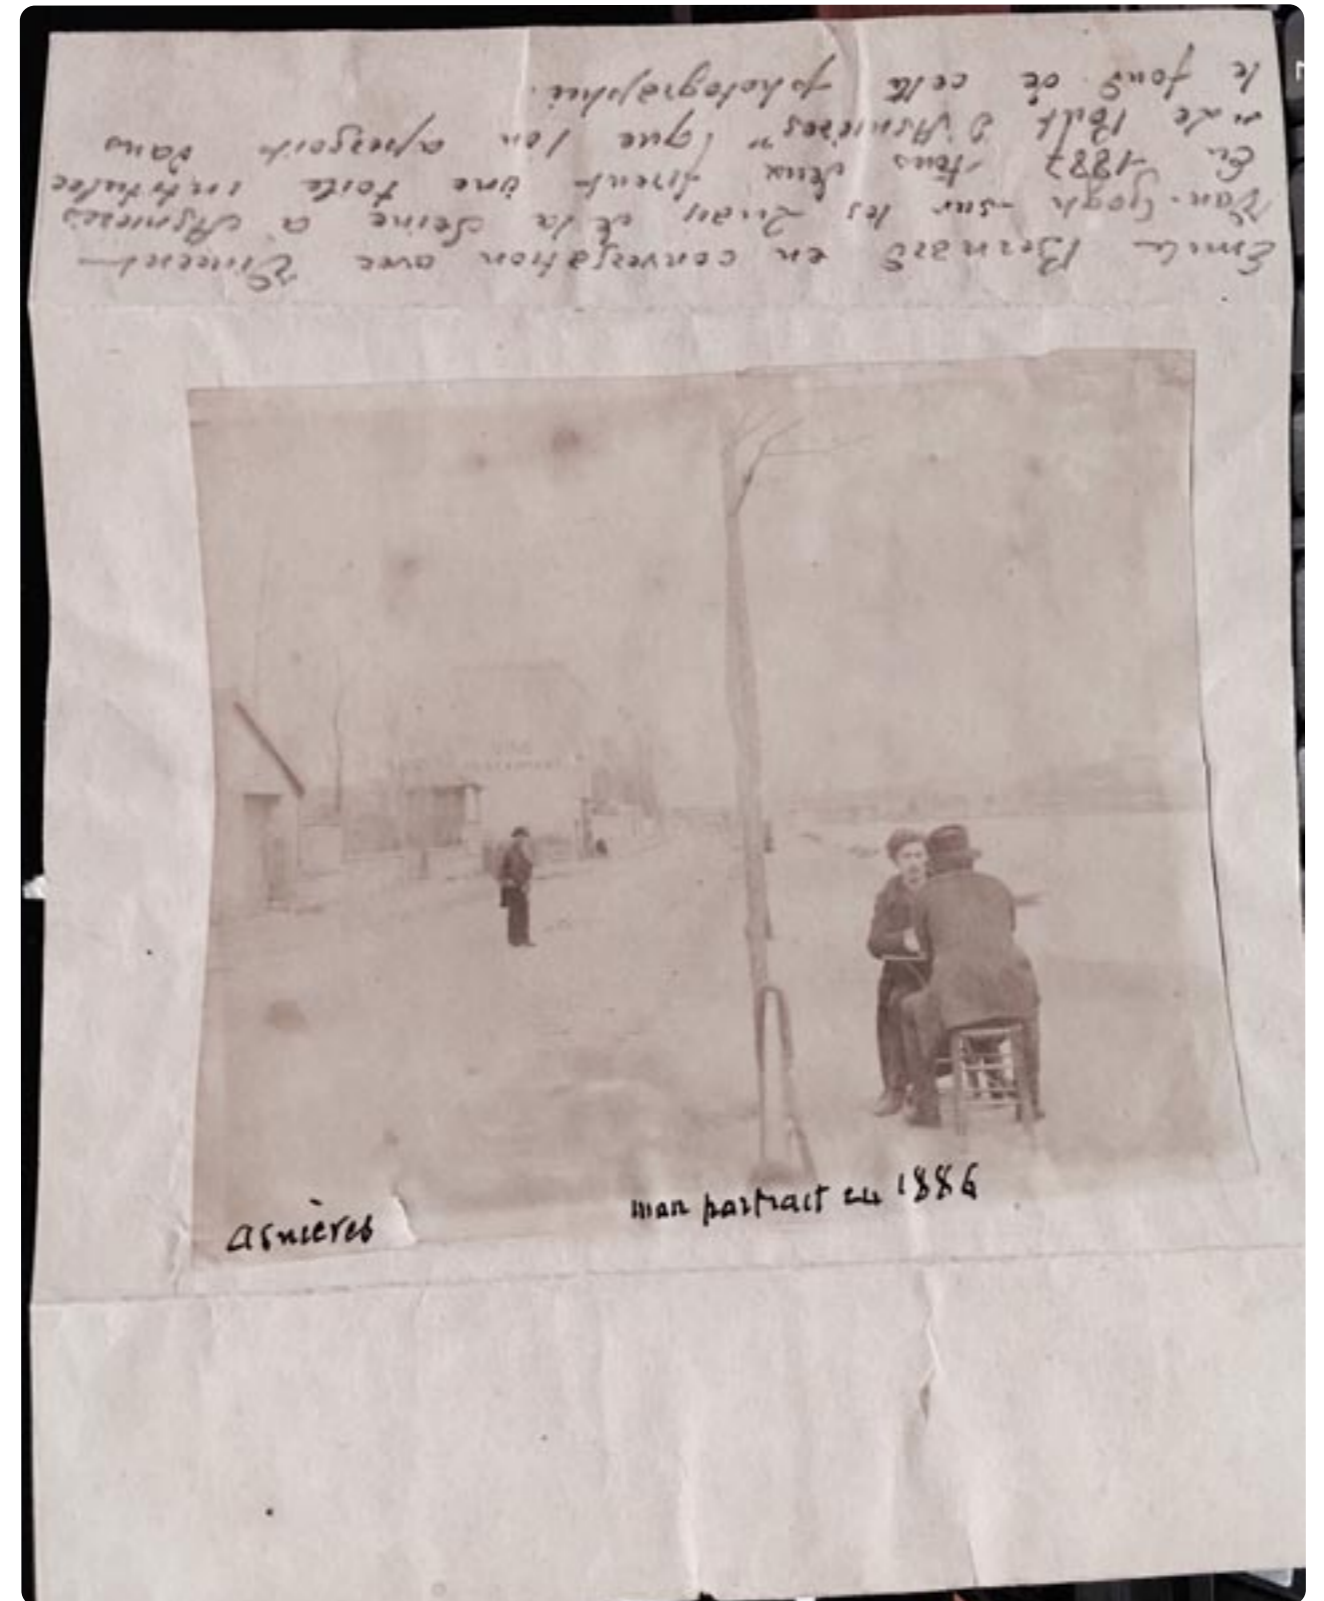 Emile Bernard en conversation avec Vincent
Van-Gogh sur les quais de la Seine à Asnières
En 1887 tous deux firent une toile intitulée
"Le Pont d'Asnières" (que l'on aperçoit dans
le fond de cette photographie.
asnières
mon portrait en 1886